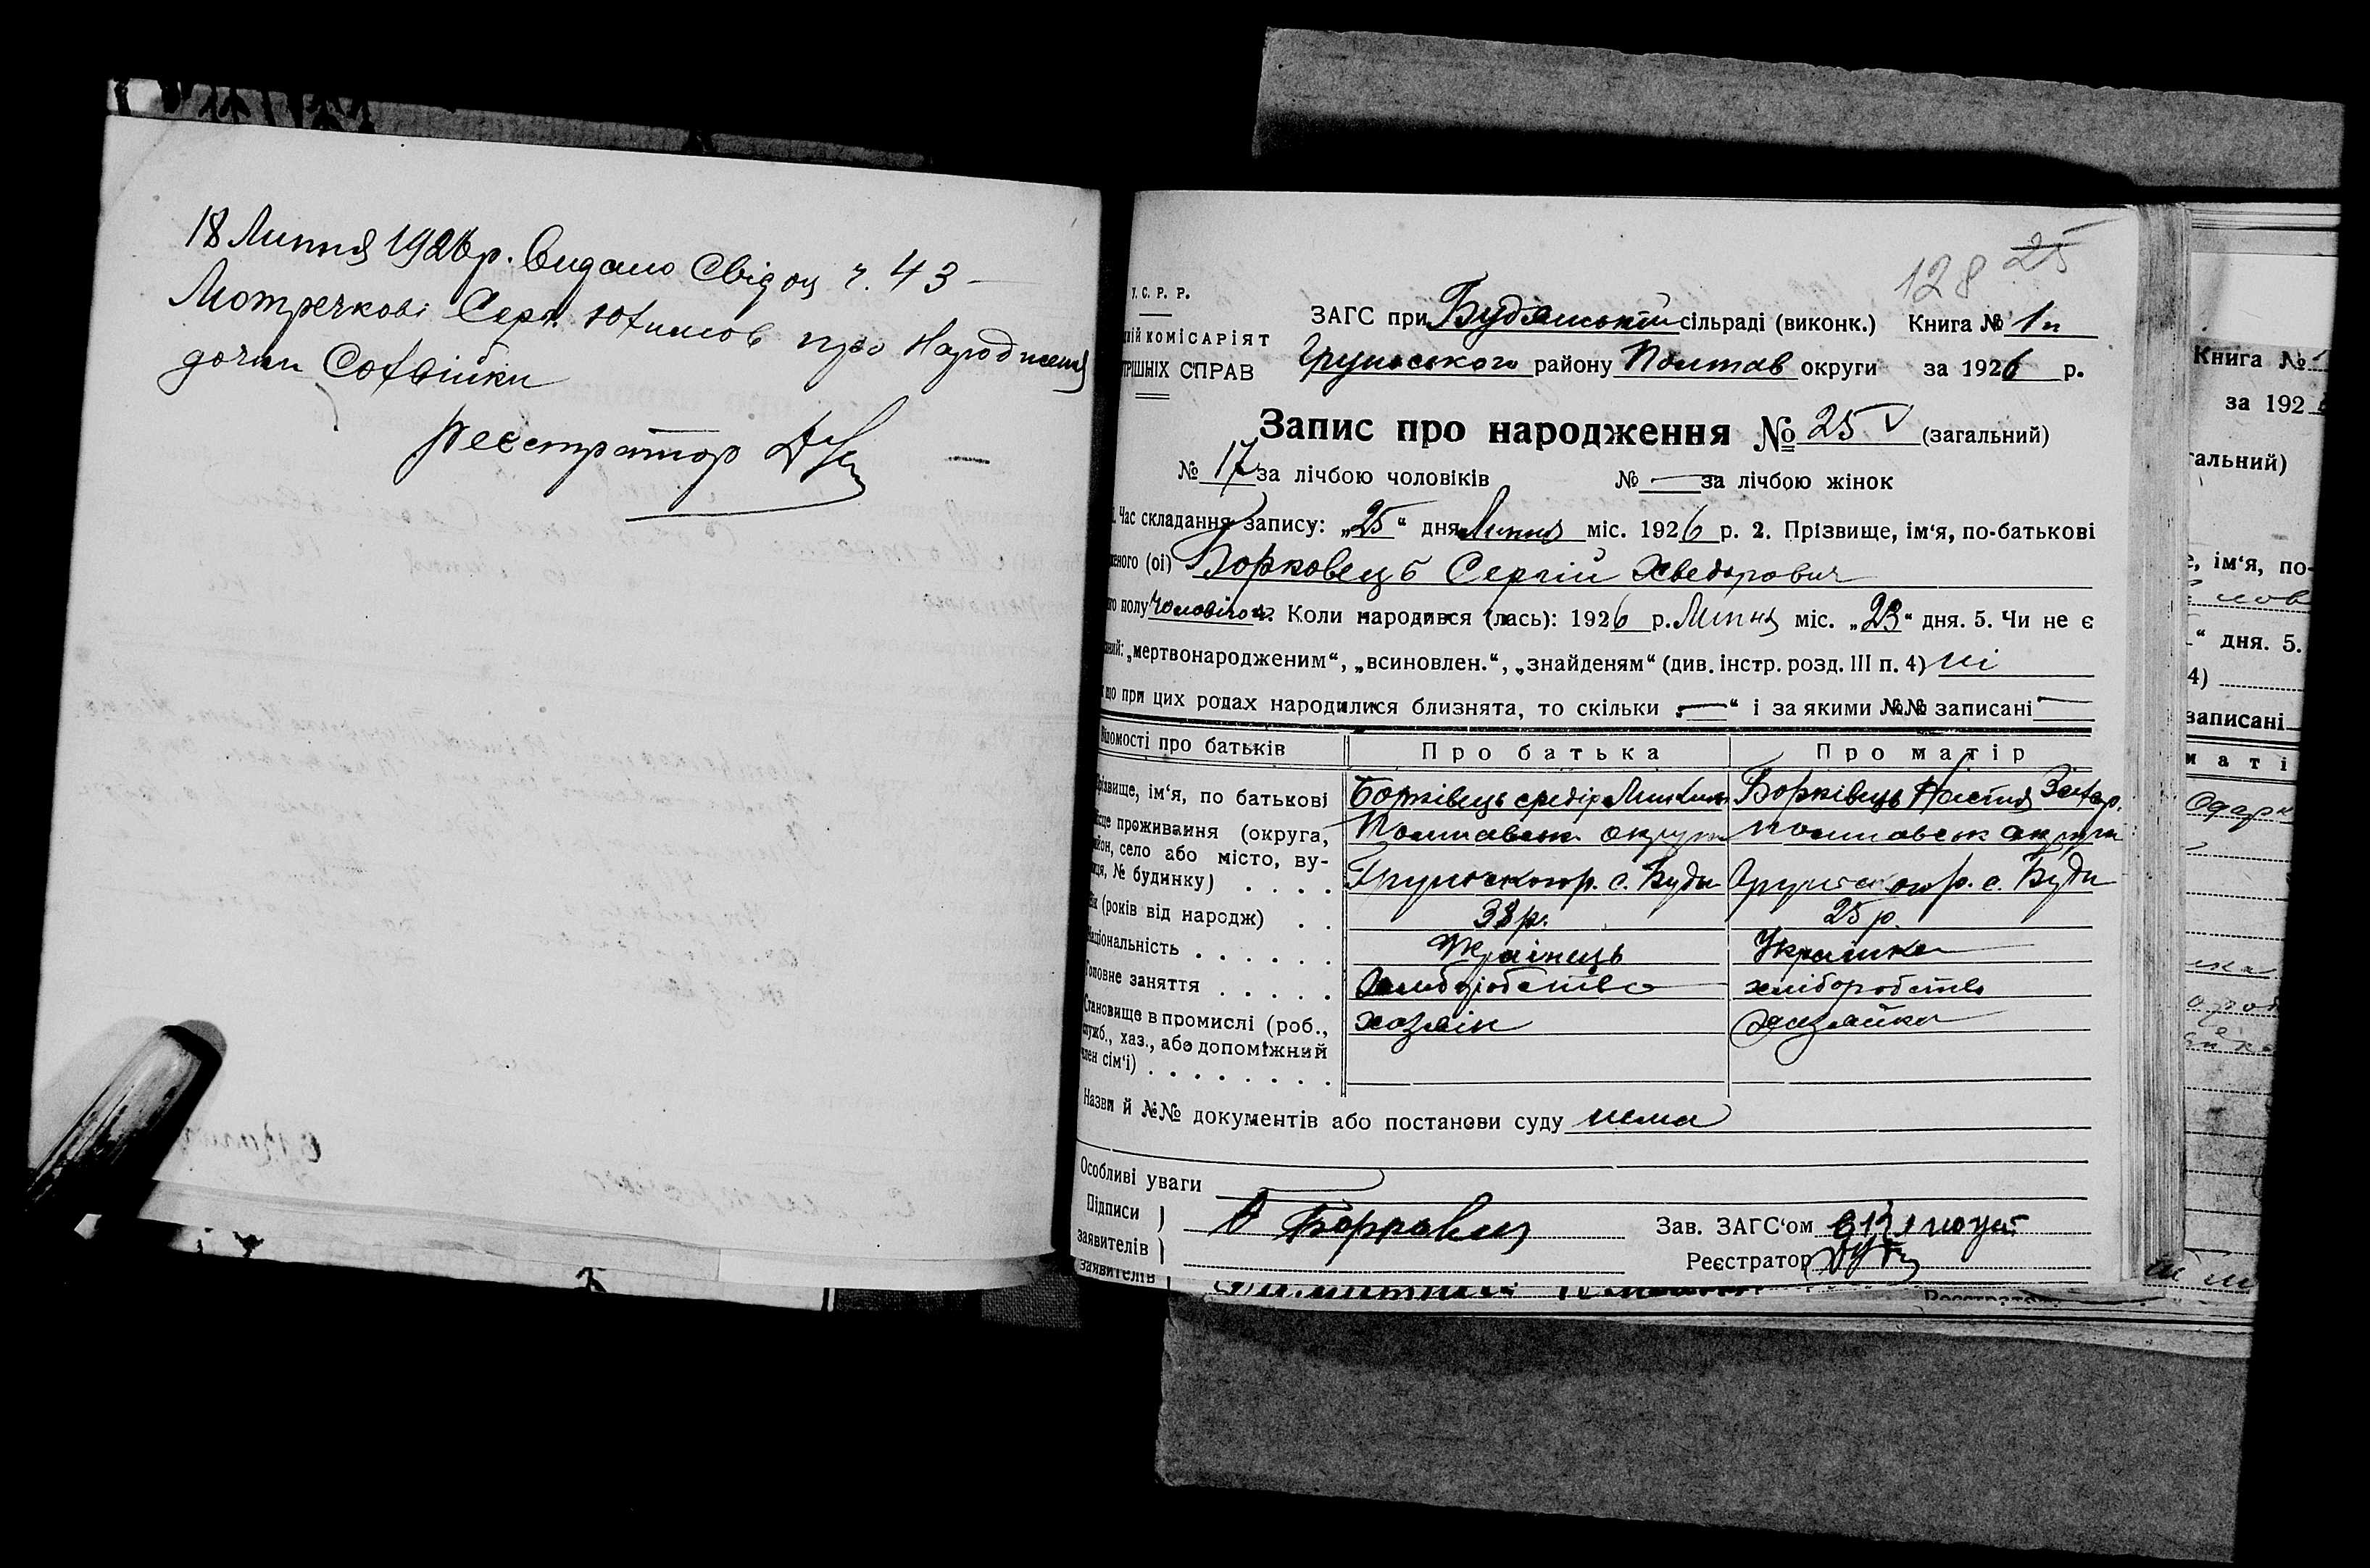 18 Липня 1926 р. видано Свідоц ч. 43 —
Мотречкові Серг. Юхимов про народження
дочки Софвійки
Реєстратор
128 25
У. С. Р. Р.
КОМІСАРІЯТ
СПРАВ
ЗАГС при Будянській сільраді (виконк.) Книга № 1н
Грунського району Полтав округи за 1926 р.
Запис про народження № 25 V (загальний)
№ 17 за лічбою чоловіків № — за лічбою жінок
1. Час складання запису: „25“ дня Липня міс. 1926 р. 2. Прізвище, ім‘я, по-батькові
(ої) Борковець Сергій Хведорович
полу чоловічо 4. Коли народився (лась): 1926 р. Липня міс. „23“ дня. 5. Чи не є
„мертвонародженим“, „всиновлен.“, „знайденям“ (див. інстр. розд. III п. 4) ні
що при цих родах народилися близнята, то скільки „—“ і за якими №№ записані —
Відомості про батьків Про батька Про матір
Прізвище, ім‘я, по батькові Борківець Федір Борківець Настия Захар.
проживання (округа, Полтавськ округи Полтавськ округи
район, село або місто, ву-
лиця, № будинку) . . . . Грунського р. с. Буди Грунського р. с. Буди
Вік (років від народж) . . 38 р. 25 р.
Національність . . . . . . Українець Українка
Головне заняття . . . . . Хліборобство хліборобство
Становище в промислі (роб., хазяїн Хазяйка
служб., хаз., або допоміжний
член сім‘ї) . . . . . . . .
Назви й №№ документів або постанови суду нема
Особливі уваги
Підписи }
заявителів } Борковец Зав. ЗАГС‘ом
Реєстратор
заявителів
Книга №
за 192
гальний)
ім‘я, по-
“ дня. 5.
4)
записані
м а т і